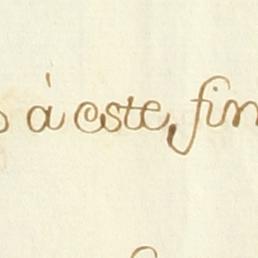 à este, fin